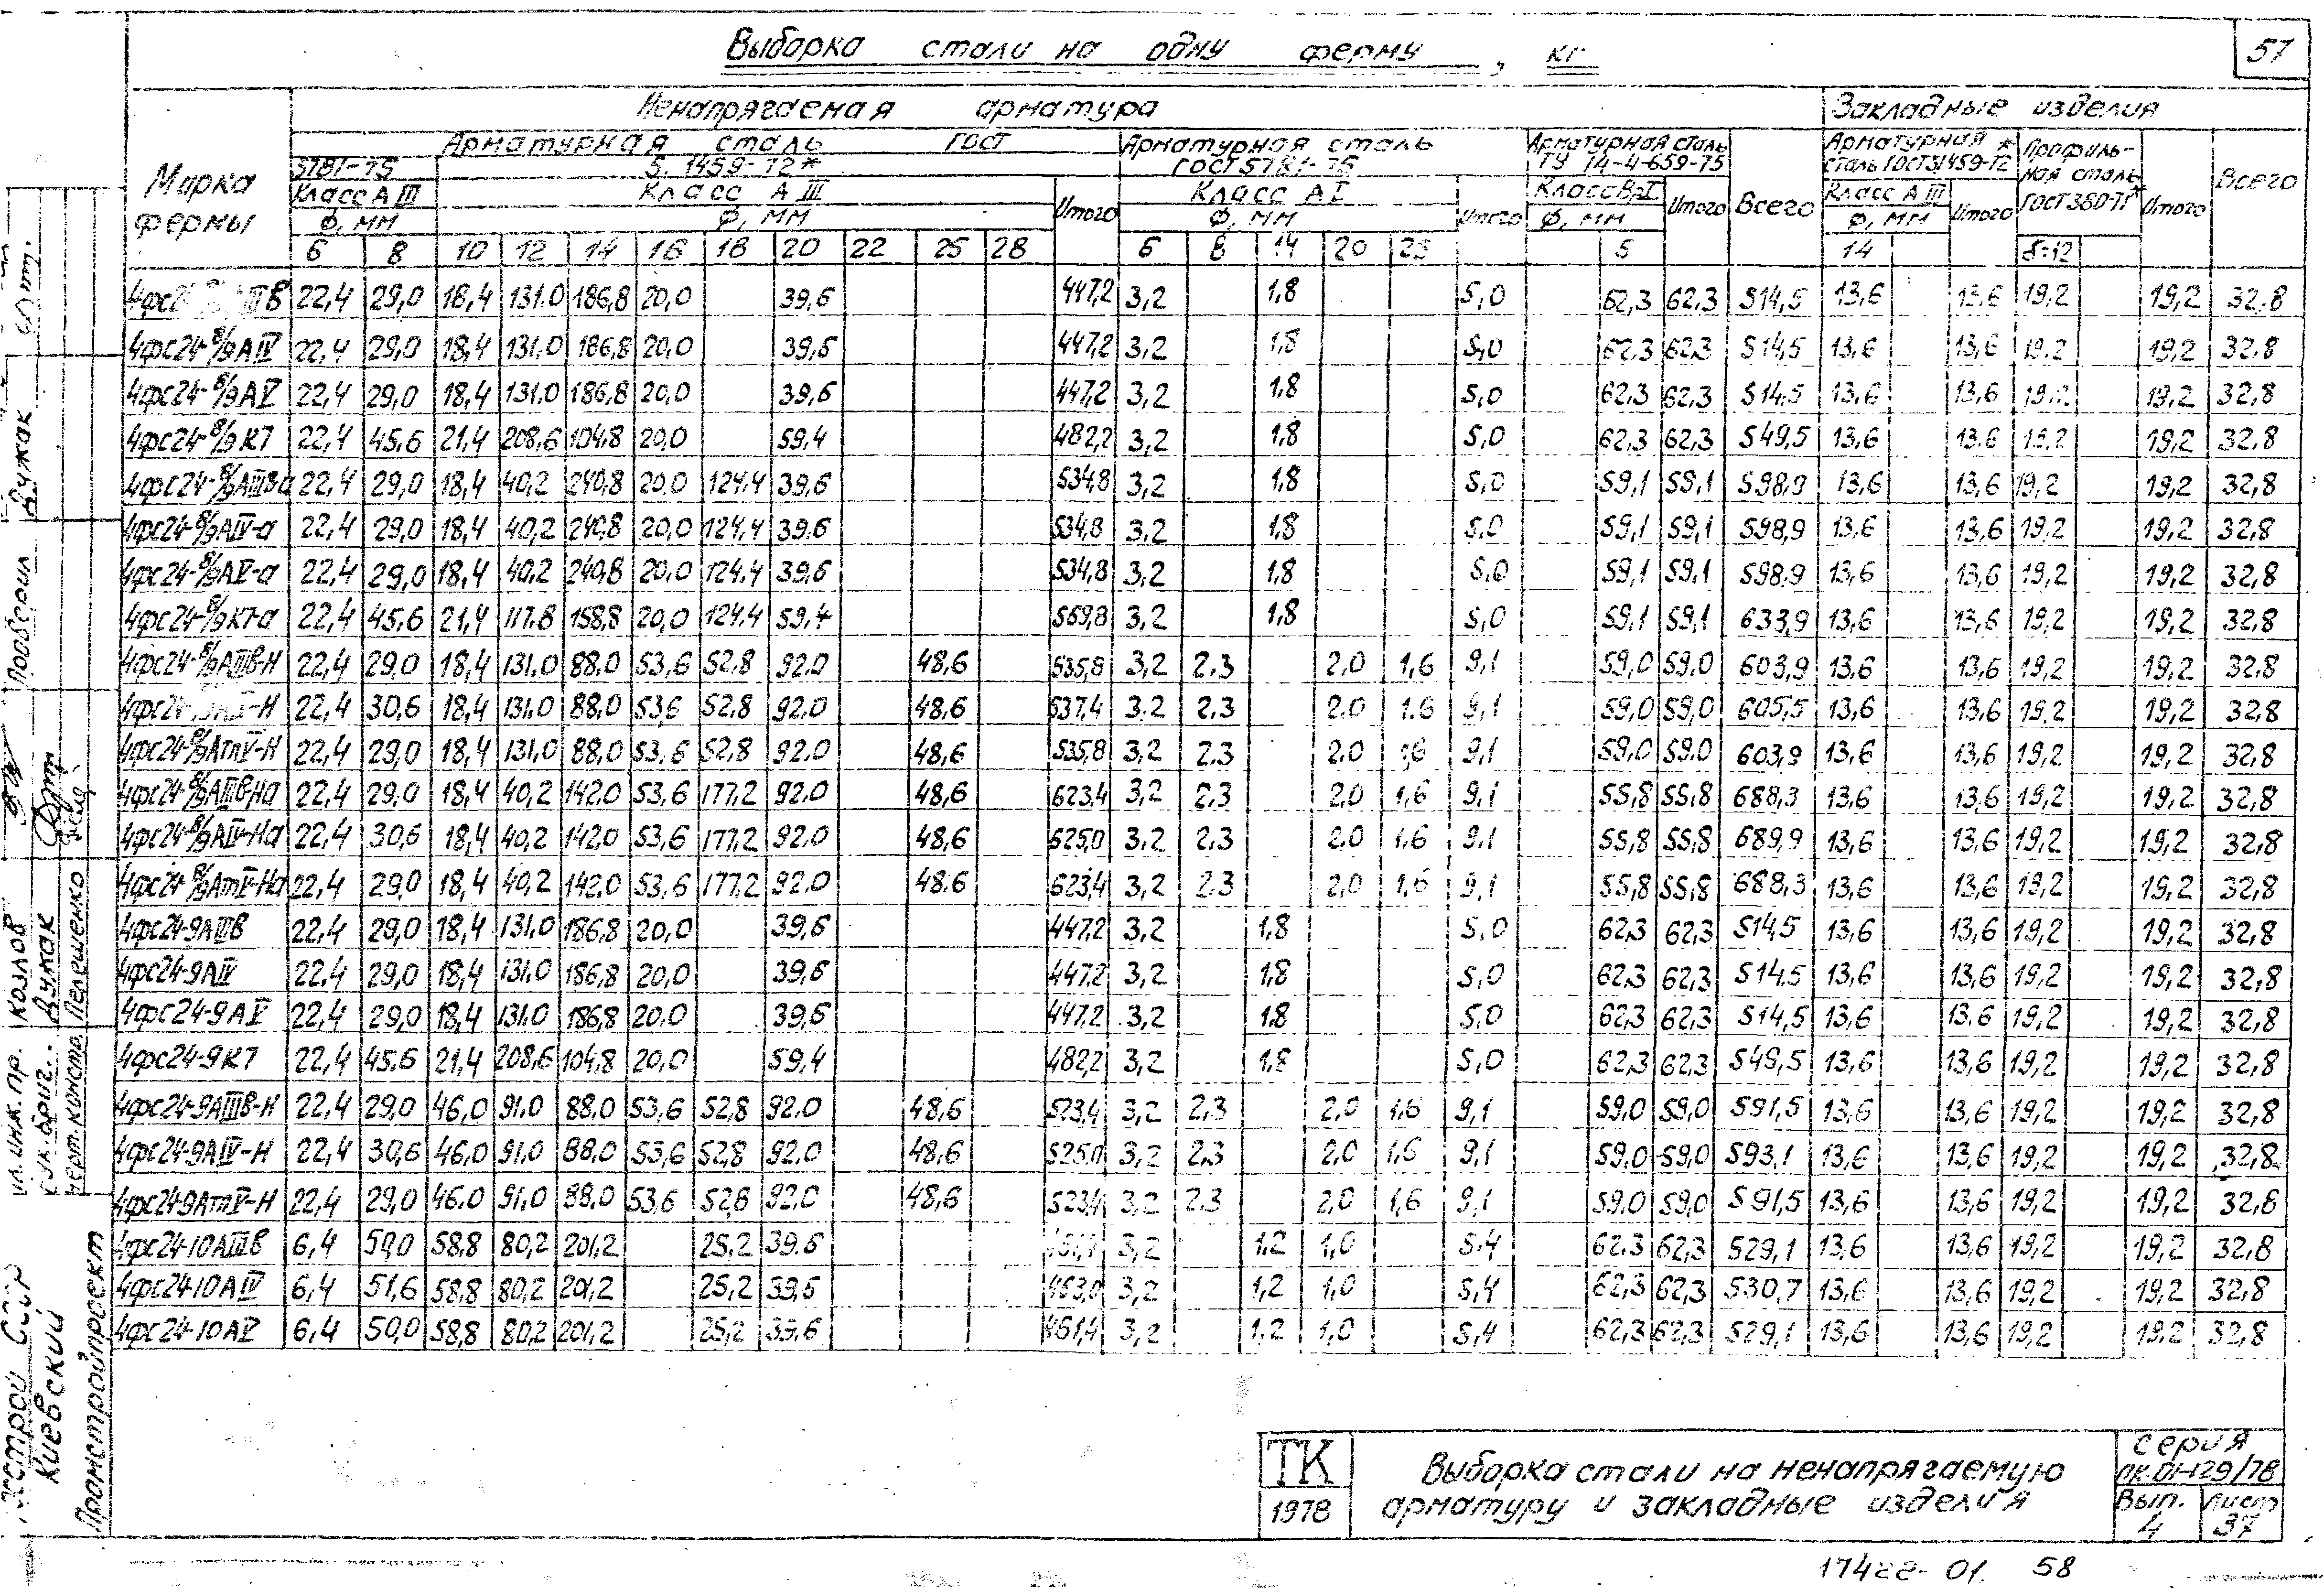 Выборка стали на одну ферму, кг
57
Марка фермы
Ненапрягаемая арматура
Закладные изделия
Арматурная сталь ГОСТ
5781-75
5.1459-72*
Класс А III
Класс А III
Ф, мм
Ф, мм
Итого
Арматурная сталь ГОСТ 5781-75
Класс А I
Ф, мм
Итого
Арматурная сталь ТУ 14-4-659-75
Класс Вр-I
Ф, мм
Итого
Всего
Арматурная сталь ГОСТ 5.1459-72*
Класс А III
Ф, мм
Итого
Профильная сталь ГОСТ 380-71*
Итого
Всего
6 8 10 12 14 16 18 20 22 25 28 6 8 14 20 28 5 14 δ=12
22,4 29,0 18,4 131,0 186,8 20,0 39,6 447,2 3,2 1,8 5,0 62,3 62,3 514,5 13,6 13,6 19,2 19,2 32,8
4фс24-8/9АIV 22,4 29,0 18,4 131,0 186,8 20,0 39,6 447,2 3,2 1,8 5,0 62,3 62,3 514,5 13,6 13,6 19,2 19,2 32,8
4фс24-8/9АV 22,4 29,0 18,4 131,0 186,8 20,0 39,6 447,2 3,2 1,8 5,0 62,3 62,3 514,5 13,6 13,6 19,2 19,2 32,8
4фс24-8/9К7 22,4 45,6 21,4 208,6 104,8 20,0 59,4 482,2 3,2 1,8 5,0 62,3 62,3 549,5 13,6 13,6 19,2 19,2 32,8
4фс24-8/9АIIIва 22,4 29,0 18,4 40,2 240,8 20,0 124,4 39,6 534,8 3,2 1,8 5,0 59,1 59,1 598,9 13,6 13,6 19,2 19,2 32,8
4фс24-8/9АIV-а 22,4 29,0 18,4 40,2 240,8 20,0 124,4 39,6 534,8 3,2 1,8 5,0 59,1 59,1 598,9 13,6 13,6 19,2 19,2 32,8
4фс24-8/9АV-а 22,4 29,0 18,4 40,2 240,8 20,0 124,4 39,6 534,8 3,2 1,8 5,0 59,1 59,1 598,9 13,6 13,6 19,2 19,2 32,8
4фс24-8/9К7-а 22,4 45,6 21,4 117,8 158,8 20,0 124,4 59,4 569,8 3,2 1,8 5,0 59,1 59,1 633,9 13,6 13,6 19,2 19,2 32,8
4фс24-8/9АIIIв-Н 22,4 29,0 18,4 131,0 88,0 53,6 52,8 92,0 48,6 535,8 3,2 2,3 2,0 1,6 9,1 59,0 59,0 603,9 13,6 13,6 19,2 19,2 32,8
22,4 30,6 18,4 131,0 88,0 53,6 52,8 92,0 48,6 537,4 3,2 2,3 2,0 1,6 9,1 59,0 59,0 605,5 13,6 13,6 19,2 19,2 32,8
4фс24-8/9АтV-Н 22,4 29,0 18,4 131,0 88,0 53,6 52,8 92,0 48,6 535,8 3,2 2,3 2,0 1,6 9,1 59,0 59,0 603,9 13,6 13,6 19,2 19,2 32,8
4фс24-8/9АIIIв-На 22,4 29,0 18,4 40,2 142,0 53,6 177,2 92,0 48,6 623,4 3,2 2,3 2,0 1,6 9,1 55,8 55,8 688,3 13,6 13,6 19,2 19,2 32,8
4фс24-8/9АIV-На 22,4 30,6 18,4 40,2 142,0 53,6 177,2 92,0 48,6 625,0 3,2 2,3 2,0 1,6 9,1 55,8 55,8 689,9 13,6 13,6 19,2 19,2 32,8
4фс24-8/9АтV-На 22,4 29,0 18,4 40,2 142,0 53,6 177,2 92,0 48,6 623,4 3,2 2,3 2,0 1,6 9,1 55,8 55,8 688,3 13,6 13,6 19,2 19,2 32,8
4фс24-9АIIIв 22,4 29,0 18,4 131,0 186,8 20,0 39,6 447,2 3,2 1,8 5,0 62,3 62,3 514,5 13,6 13,6 19,2 19,2 32,8
4фс24-9АIV 22,4 29,0 18,4 131,0 186,8 20,0 39,6 447,2 3,2 1,8 5,0 62,3 62,3 514,5 13,6 13,6 19,2 19,2 32,8
4фс24-9АV 22,4 29,0 18,4 131,0 186,8 20,0 39,6 447,2 3,2 1,8 5,0 62,3 62,3 514,5 13,6 13,6 19,2 19,2 32,8
4фс24-9К7 22,4 45,6 21,4 208,6 104,8 20,0 59,4 482,2 3,2 1,8 5,0 62,3 62,3 549,5 13,6 13,6 19,2 19,2 32,8
4фс24-9АIIIв-Н 22,4 29,0 46,0 91,0 88,0 53,6 52,8 92,0 48,6 523,4 3,2 2,3 2,0 1,6 9,1 59,0 59,0 591,5 13,6 13,6 19,2 19,2 32,8
4фс24-9АIV-Н 22,4 30,6 46,0 91,0 88,0 53,6 52,8 92,0 48,6 525,0 3,2 2,3 2,0 1,6 9,1 59,0 59,0 593,1 13,6 13,6 19,2 19,2 32,8
4фс24-9АтV-Н 22,4 29,0 46,0 91,0 88,0 53,6 52,8 92,0 48,6 523,4 3,2 2,3 2,0 1,6 9,1 59,0 59,0 591,5 13,6 13,6 19,2 19,2 32,8
4фс24-10АIIIв 6,4 50,0 58,8 80,2 201,2 25,2 39,6 3,2 1,2 1,0 5,4 62,3 62,3 529,1 13,6 13,6 19,2 19,2 32,8
4фс24-10АIV 6,4 51,6 58,8 80,2 201,2 25,2 39,6 463,0 3,2 1,2 1,0 5,4 62,3 62,3 530,7 13,6 13,6 19,2 19,2 32,8
4фс24-10АV 6,4 50,0 58,8 80,2 201,2 25,2 39,6 461,4 3,2 1,2 1,0 5,4 62,3 62,3 529,1 13,6 13,6 19,2 19,2 32,8
Госстрой СССР
Киевский
Промстройпроект
гл. инж. пр. Козлов
рук. бриг. Дужак
черт. констр. Пелешенко
Дужак
ТК
1978
Выборка стали на ненапрягаемую
арматуру и закладные изделия
серия
ПК-01-129/78
Вып. Лист
4 37
58